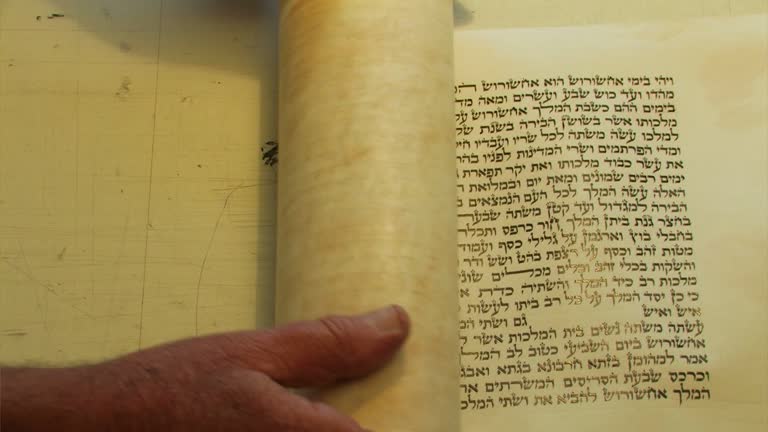 ויהי בימי אחשורוש הוא אחשורוש
מהדו ועד כוש שבע ועשרים ומאה
בימים ההם כשבת המלך אחשורוש
מלכותו אשר בשושן הבירה בשנת
למלכו עשה משתה לכל שריו ועבדיו
ומדי הפרתמים ושרי המדינות לפניו
את עשר כבוד מלכותו ואת יקר תפארת
ימים רבים שמונים ומאת יום ובמלואת
האלה עשה המלך לכל העם הנמצאים
הבירה למגדול ועד קטן משתה שבעת
בחצר גנת ביתן המלך חור כרפס ותכלת
בחבלי בוץ וארגמן על גלילי כסף ועמודי
מטות זהב וכסף על רצפת בהט ושש ודר
והשקות בכלי זהב וכלים מכלים שונים
מלכות רב כיד המלך והשתיה כדת
כי כן יסד המלך על כל רב ביתו לעשות
איש ואיש גם ושתי
עשתה משתה נשים בית המלכות אשר
אחשורוש ביום השביעי כטוב לב
אמר למהומן בזתא חרבונא בגתא
וכרכס שבעת הסריסים המשרתים את
המלך אחשורוש להביא את ושתי